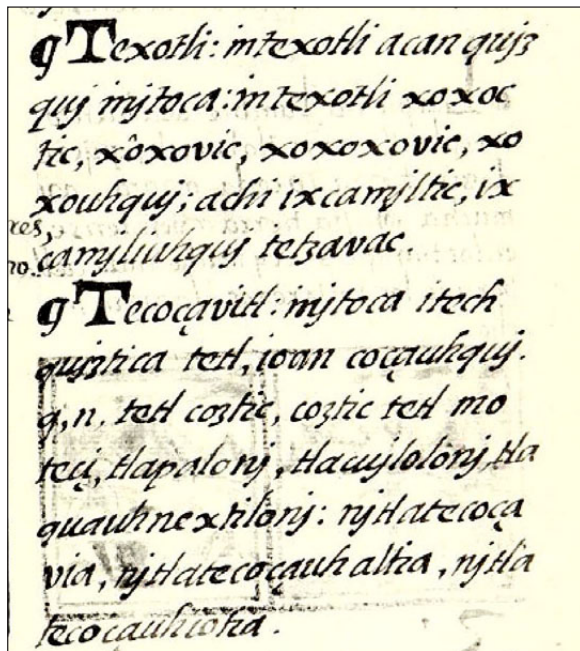 ¶ Texotli: in texotli acan quiz
quj injtoca: in texotli xoxoc
tic, xôxovic, xoxoxovic, xo
xouhquj; achi ixcamjltic, ix
res, camjliuhquj tetzavac.
no.
¶ Tecoçavitl: injtoca itech
qujztica tetl, ioan coçauhquj.
q, n, tetl coztic, coztic tetl mo
teci, tlapalonj, tlacujlolonj, tla
quauhnextilonj: njtlatecoça
via, njtlatecoçauhaltia, njtla
tecoçauhiotia.